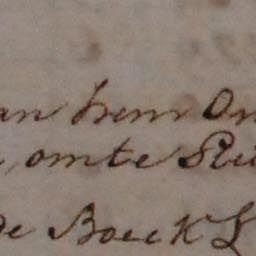 an hem On
omte Stu
de Boeck L